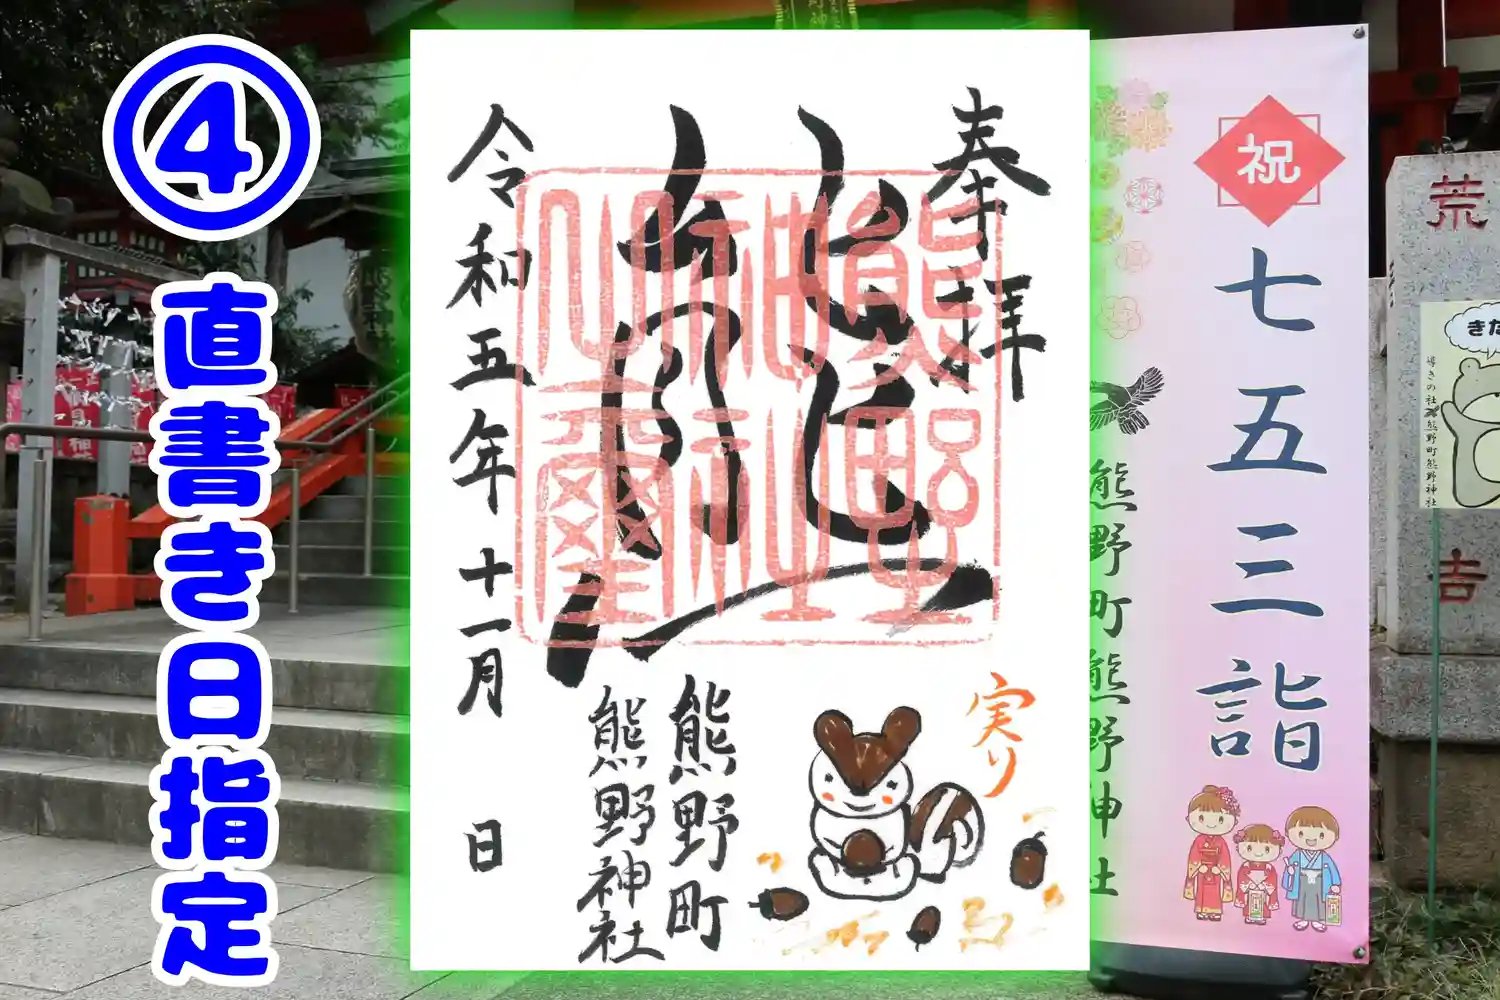 ④
直書き日指定
奉拝
熊野
神社
之璽
令和五年十一月　日
実り
熊野町
熊野神社
祝
七五三詣
熊野町熊野神社
荒
吉
導きの社
熊野町熊野神社